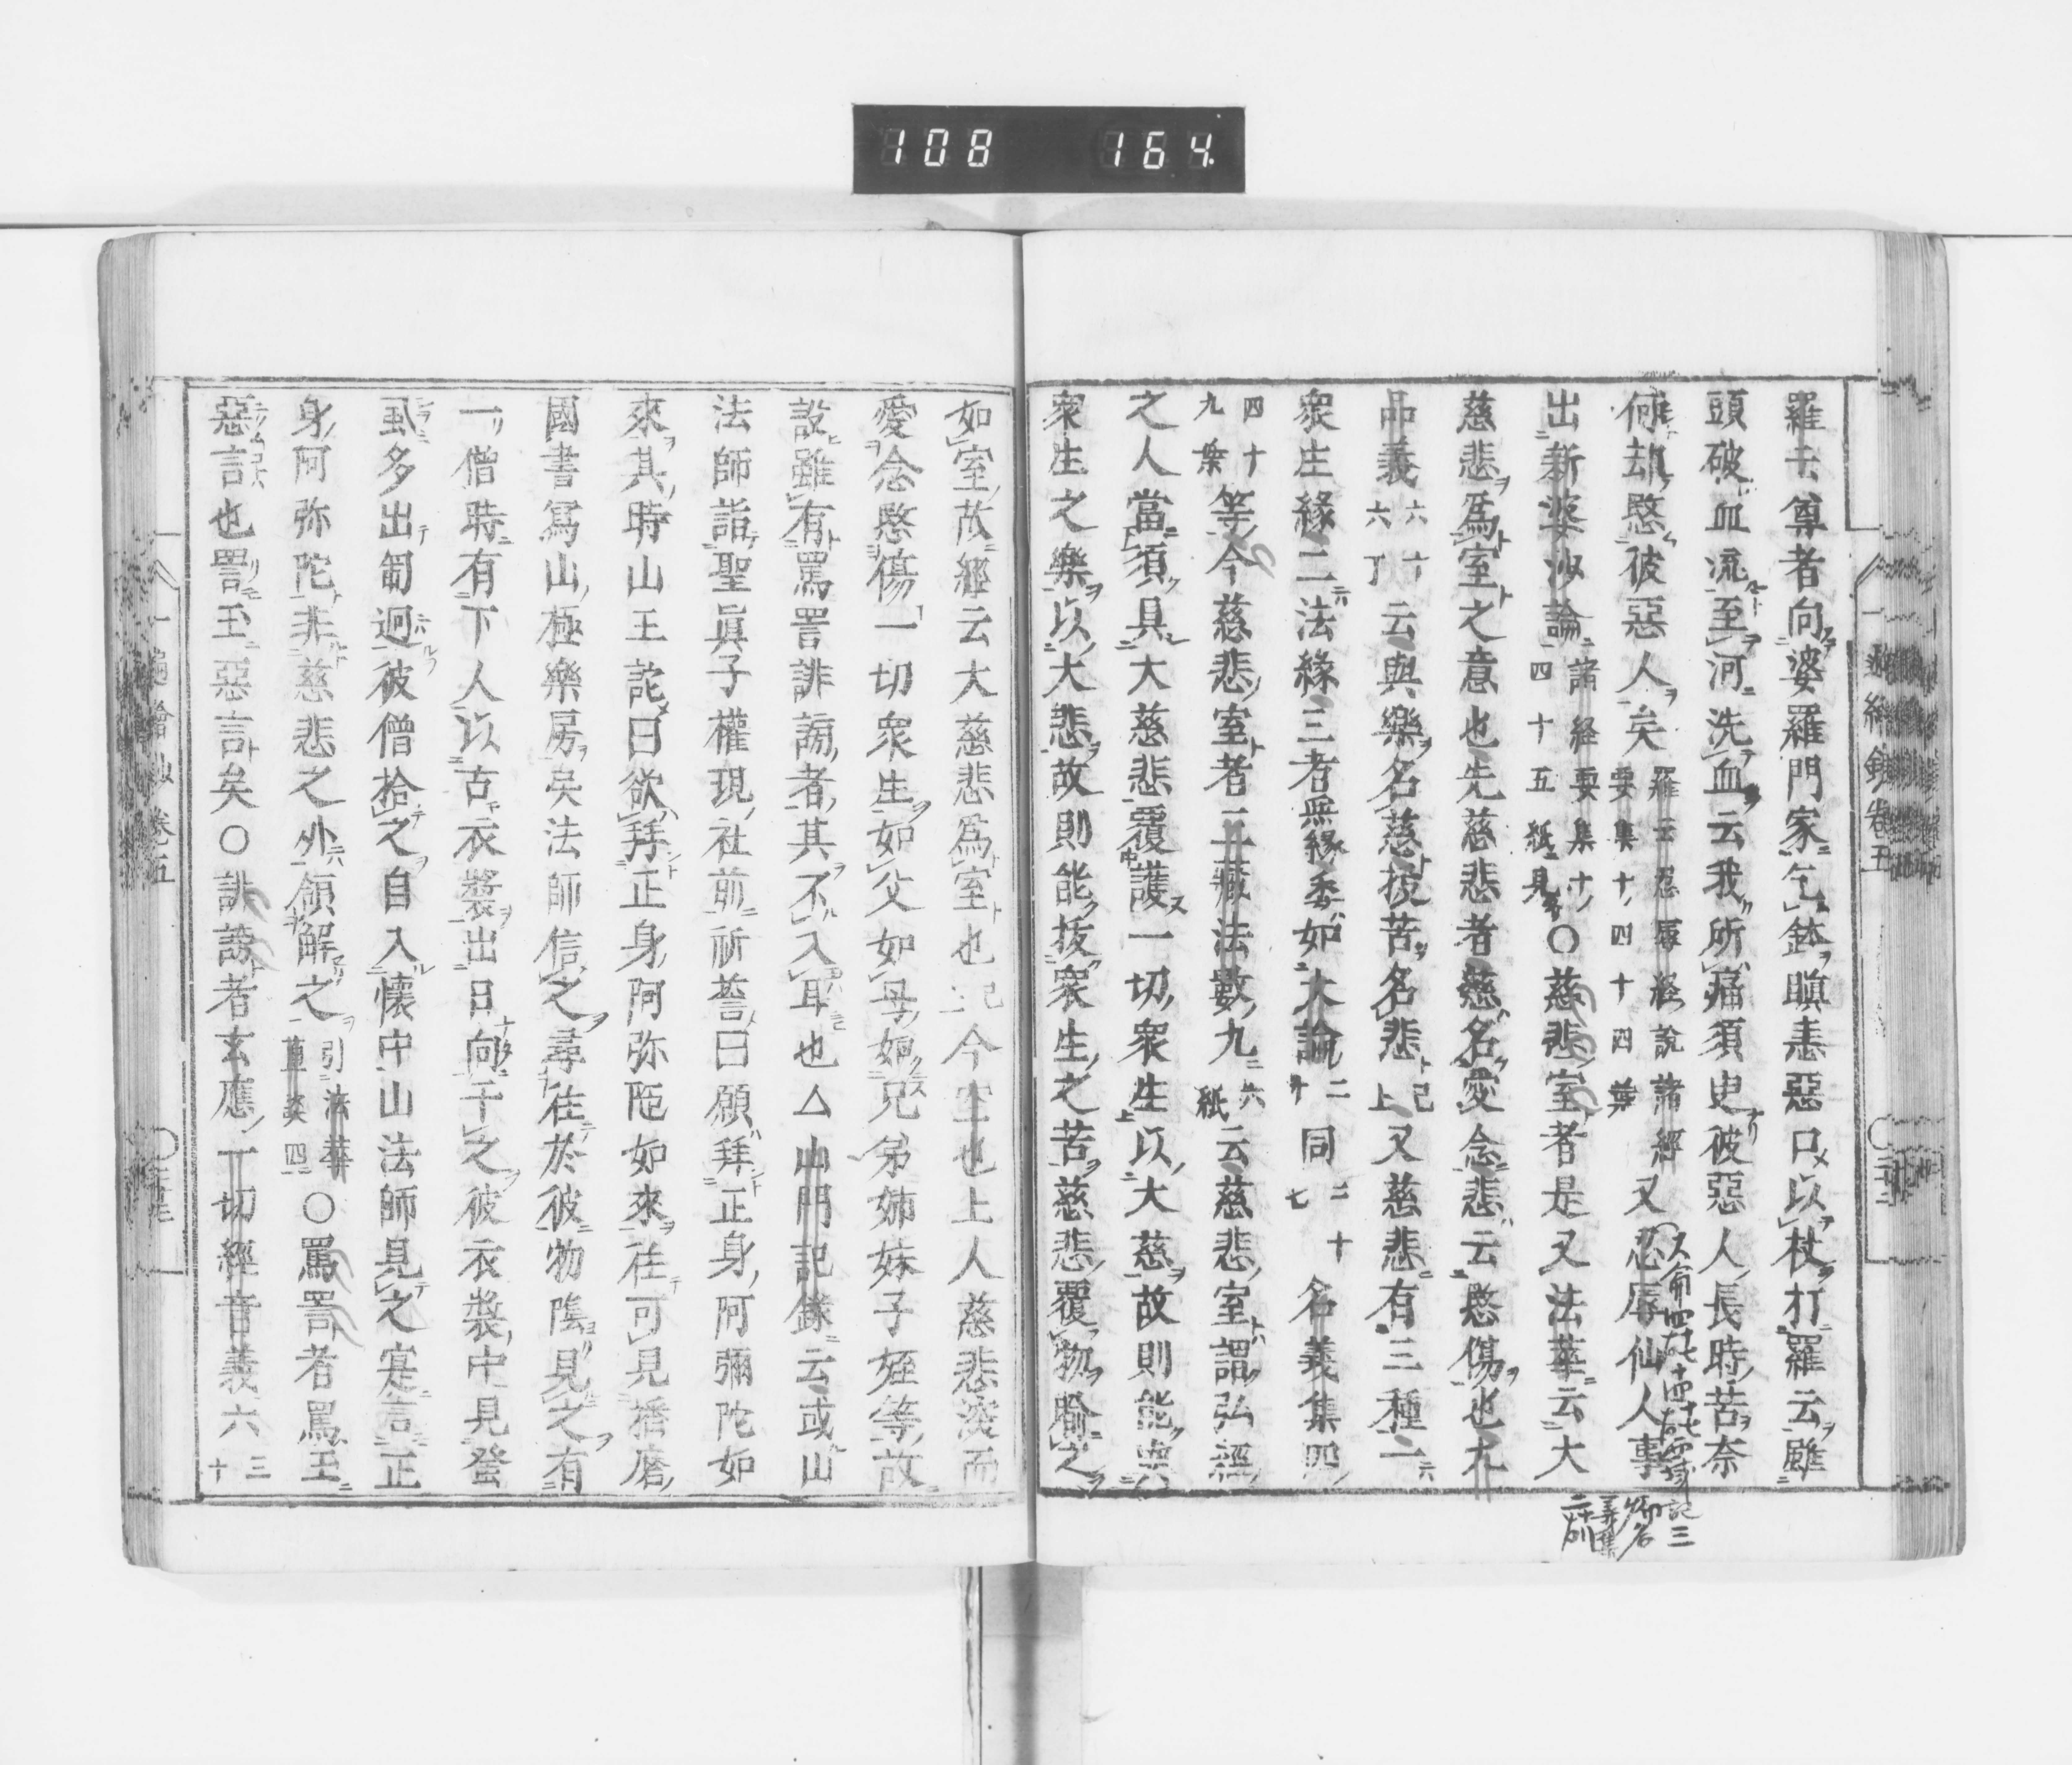 108 164
羅云尊者向婆羅門家乞鉢瞋恚惡口以杖打羅云雖
頭破血流至河洗血云我所痛須臾彼惡人長時苦奈
何劫愍彼惡人矣羅云忍辱経説諸經要集十四十四葉又忍辱仙人事
出新婆沙論諸経要集十四十五紙見○慈悲室者是又法華云大
慈悲爲室之意也先慈悲者慈名愛念悲云愍傷也九
品義六六十丁云與樂名慈抜苦名悲上已又慈悲有三種一
衆生緣二法緣三者無緣委如大論二十同二十七名義集四
四十九葉等今慈悲室者二藏法數九六紙云慈悲室謂弘經
之人當須具大慈悲覆護一切衆生以大慈故則能與
衆生之樂以大悲故則能抜衆生之苦慈悲覆物喩之
如室故經云大慈悲爲室也已上今室也上人慈悲深而
愛念愍傷一切衆生如父如母如兄弟姉妹子姪等故
設雖有罵詈誹謗者其不入耳也△山門記錄云或山
法師詣聖眞子權現社前祈誓曰願拜正身阿彌陀如
來其時山王詫曰欲拜正身阿弥陀如來往可見播磨
國書寫山極樂房矣法師信之尋往於彼物陰見之有
一僧時有下人以古衣裳出日向干之彼衣裳中見蚤
虱多出匍迴彼僧拾之自入懷中山法師見之寔言正
身阿弥陀非慈悲之外領解之引法華直談四○罵詈者罵玉
惡言也詈玉惡言矣○誹謗者玄應一切經音義六三十
一遍繪抄卷五